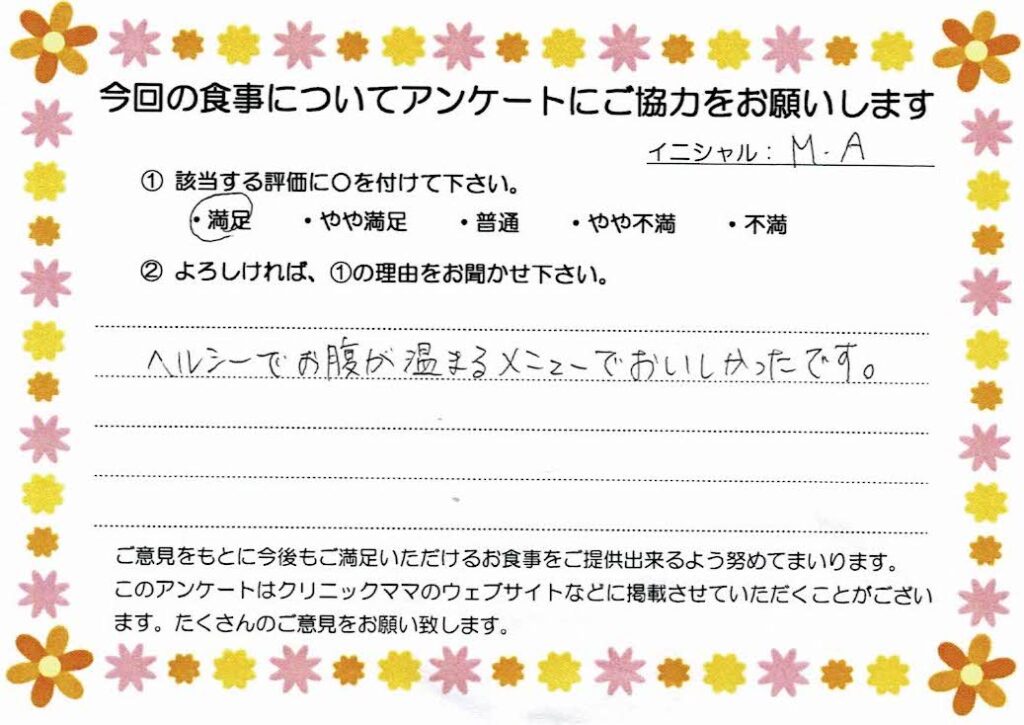 今回の食事についてアンケートにご協力をお願いします
イニシャル： M.A
① 該当する評価に〇を付けて下さい。
・満足 ・やや満足 ・普通 ・やや不満 ・不満
② よろしければ、①の理由をお聞かせ下さい。
ヘルシーでお腹が温まるメニューでおいしかったです。
ご意見をもとに今後もご満足いただけるお食事をご提供出来るよう努めてまいります。
このアンケートはクリニックママのウェブサイトなどに掲載させていただくことがござい
ます。たくさんのご意見をお願い致します。